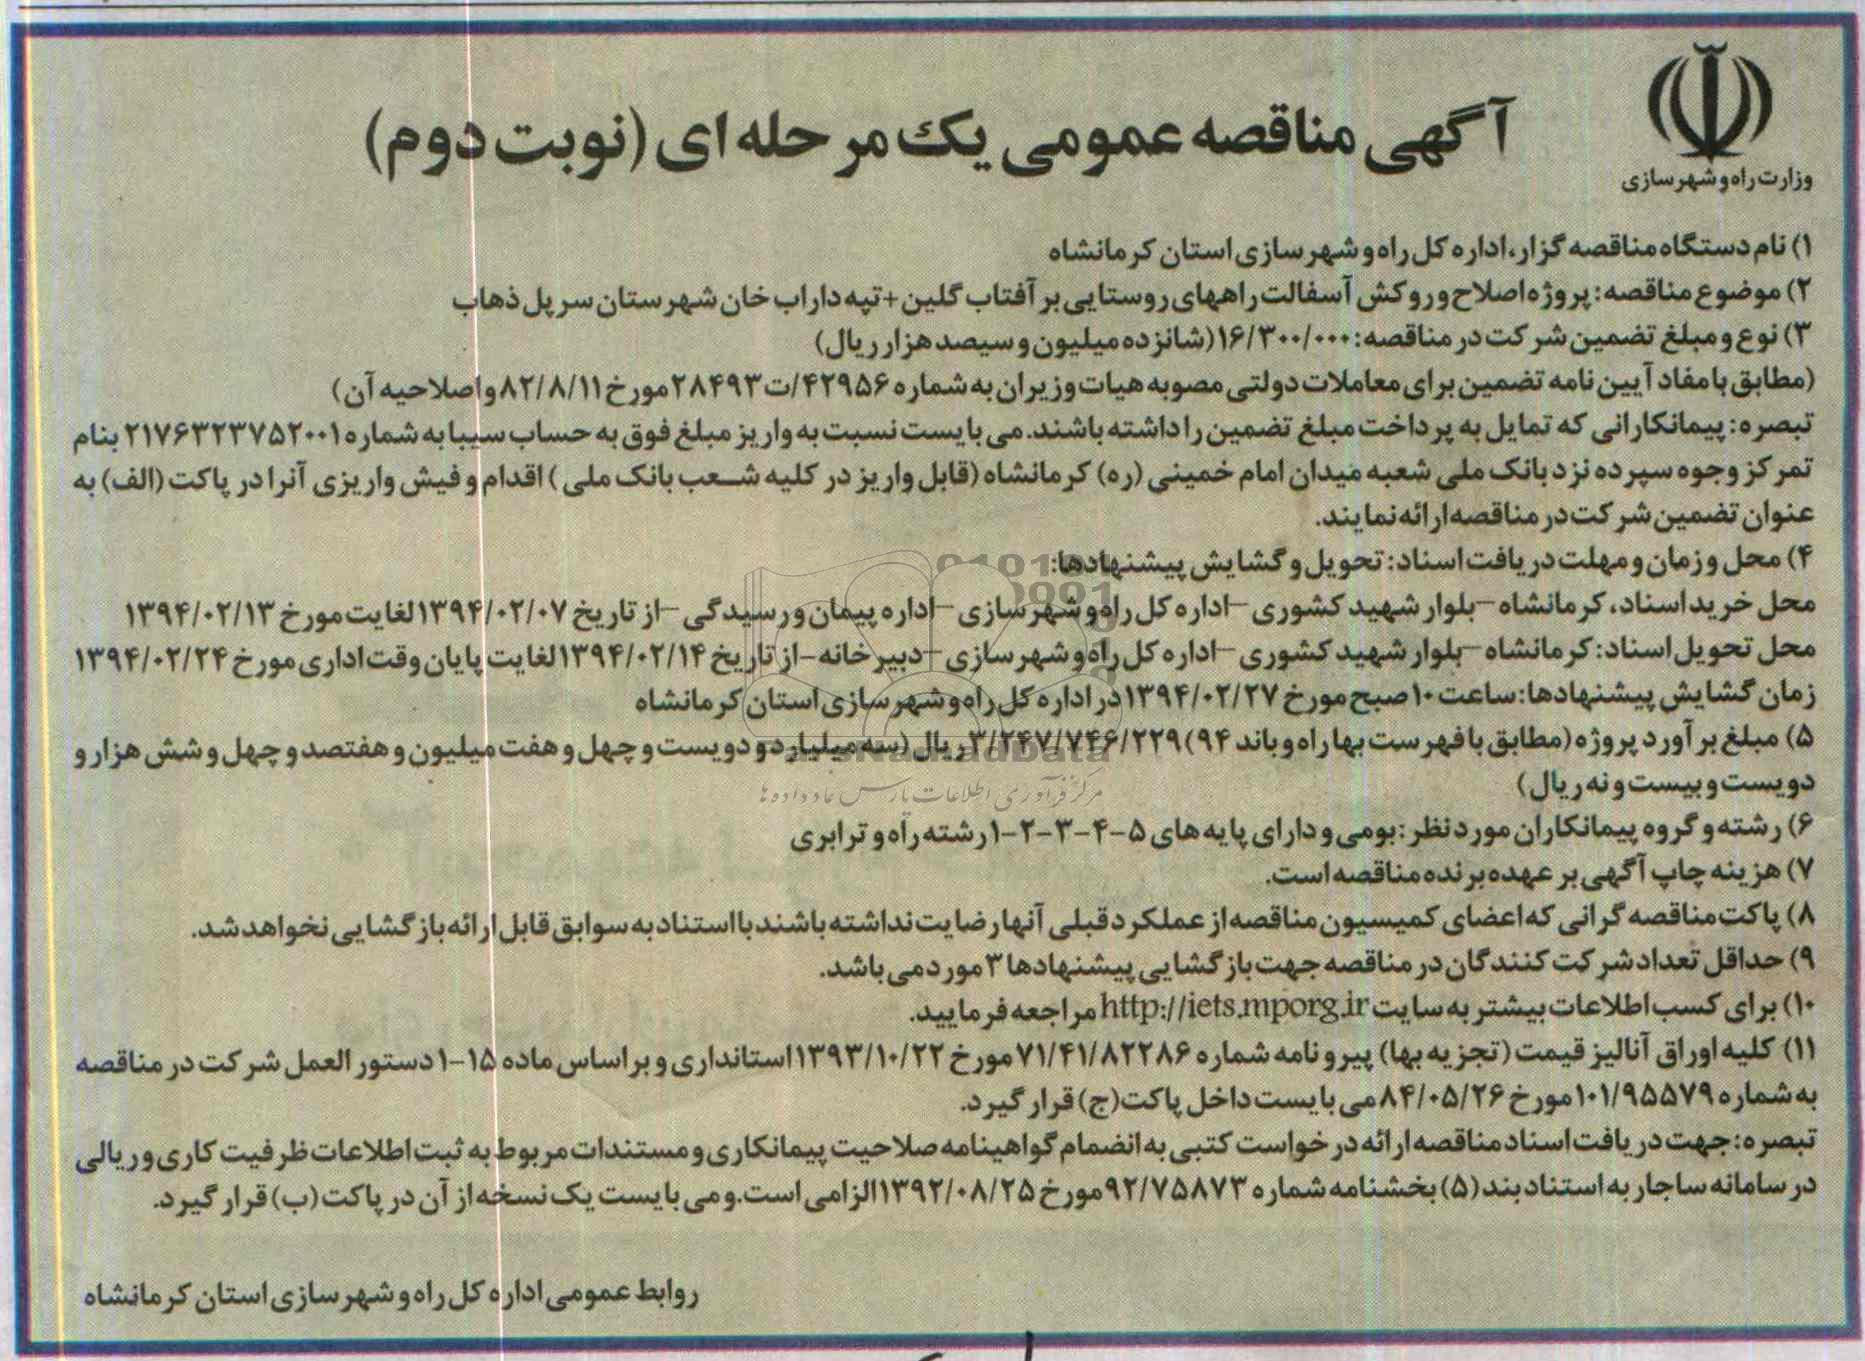 آگهی مناقصه عمومی یک مرحله ای (نوبت دوم)
وزارت راه و شهرسازی
۱) نام دستگاه مناقصه گزار، اداره کل راه و شهرسازی استان کرمانشاه
۲) موضوع مناقصه: پروژه اصلاح و روکش آسفالت راههای روستایی برآفتاب گلین+تپه داراب خان شهرستان سرپل ذهاب
۳) نوع و مبلغ تضمین شرکت در مناقصه: ۱۶/۳۰۰/۰۰۰(شانزده میلیون و سیصد هزار ریال)
(مطابق با مفاد آیین نامه تضمین برای معاملات دولتی مصوبه هیات وزیران به شماره ۴۲۹۵۶/ت۲۸۴۹۳ مورخ ۸۲/۸/۱۱ و اصلاحیه آن)
تبصره: پیمانکارانی که تمایل به پرداخت مبلغ تضمین را داشته باشند. می بایست نسبت به واریز مبلغ فوق به حساب سیبا به شماره ۲۱۷۶۳۲۳۷۵۲۰۰۱ بنام
تمرکز وجوه سپرده نزد بانک ملی شعبه میدان امام خمینی (ره) کرمانشاه (قابل واریز در کلیه شعب بانک ملی) اقدام و فیش واریزی آنرا در پاکت (الف) به
عنوان تضمین شرکت در مناقصه ارائه نمایند.
۴) محل و زمان و مهلت دریافت اسناد: تحویل و گشایش پیشنهادها:
محل خرید اسناد، کرمانشاه –بلوار شهید کشوری –اداره کل راه و شهرسازی –اداره پیمان و رسیدگی –از تاریخ ۱۳۹۴/۰۲/۰۷ لغایت مورخ ۱۳۹۴/۰۲/۱۳
محل تحویل اسناد: کرمانشاه –بلوار شهید کشوری –اداره کل راه و شهرسازی –دبیرخانه –از تاریخ ۱۳۹۴/۰۲/۱۴ لغایت پایان وقت اداری مورخ ۱۳۹۴/۰۲/۲۴
زمان گشایش پیشنهادها: ساعت ۱۰ صبح مورخ ۱۳۹۴/۰۲/۲۷ در اداره کل راه و شهرسازی استان کرمانشاه
۵) مبلغ برآورد پروژه (مطابق با فهرست بها راه و باند ۹۴) ۳/۲۴۷/۷۴۶/۲۲۹ ریال (سه میلیارد و دویست و چهل و هفت میلیون و هفتصد و چهل و شش هزار و
دویست و بیست و نه ریال)
مرکز فرآوری اطلاعات پارس نماد داده ها
۶) رشته و گروه پیمانکاران مورد نظر: بومی و دارای پایه های ۵-۴-۳-۲-۱ رشته راه و ترابری
۷) هزینه چاپ آگهی بر عهده برنده مناقصه است.
۸) پاکت مناقصه گرانی که اعضای کمیسیون مناقصه از عملکرد قبلی آنها رضایت نداشته باشند با استناد به سوابق قابل ارائه بازگشایی نخواهد شد.
۹) حداقل تعداد شرکت کنندگان در مناقصه جهت بازگشایی پیشنهادها ۳ مورد می باشد.
۱۰) برای کسب اطلاعات بیشتر به سایت http://iets.mporg.ir مراجعه فرمایید.
۱۱) کلیه اوراق آنالیز قیمت (تجزیه بها) پیرو نامه شماره ۷۱/۴۱/۸۲۲۸۶ مورخ ۱۳۹۳/۱۰/۲۲ استانداری و براساس ماده ۱۵-۱ دستور العمل شرکت در مناقصه
به شماره ۱۰۱/۹۵۵۷۹ مورخ ۸۴/۰۵/۲۶ می بایست داخل پاکت (ج) قرار گیرد.
تبصره: جهت دریافت اسناد مناقصه ارائه درخواست کتبی به انضمام گواهینامه صلاحیت پیمانکاری و مستندات مربوط به ثبت اطلاعات ظرفیت کاری و ریالی
در سامانه ساجار به استناد بند (۵) بخشنامه شماره ۹۲/۷۵۸۷۳ مورخ ۱۳۹۲/۰۸/۲۵ الزامی است. و می بایست یک نسخه از آن در پاکت (ب) قرار گیرد.
روابط عمومی اداره کل راه و شهرسازی استان کرمانشاه